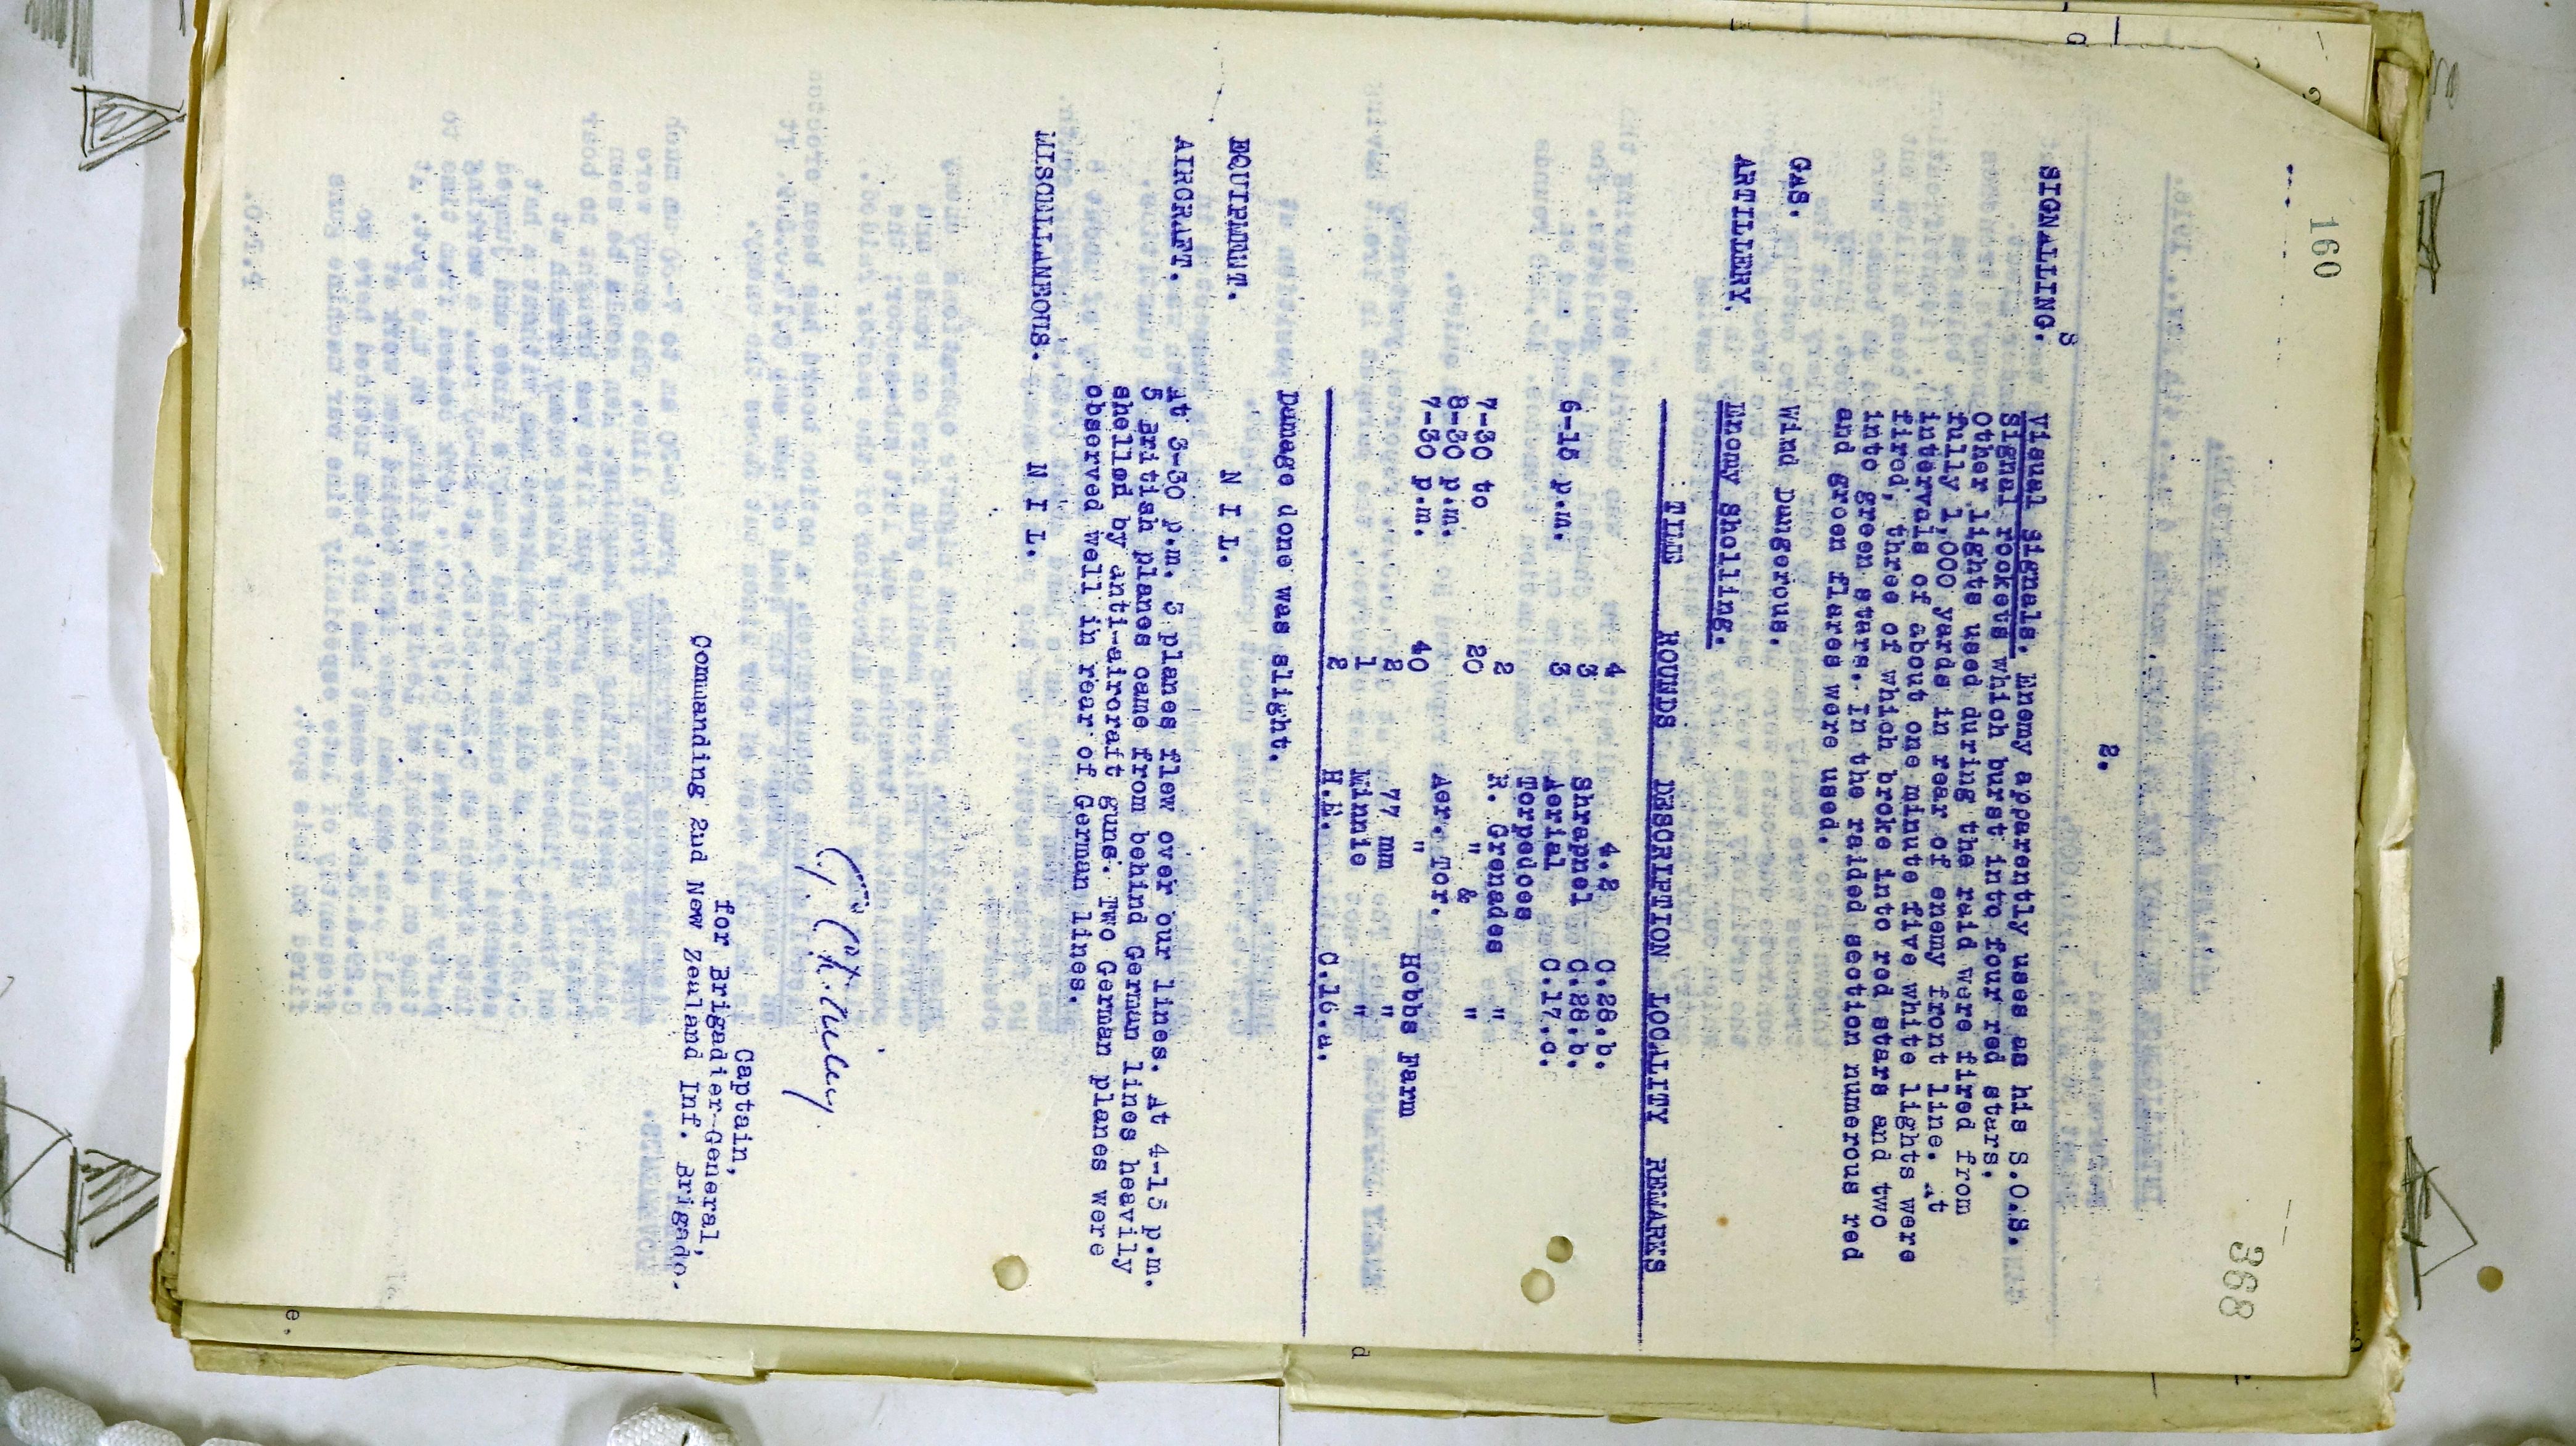 160
368
2.
SIGNALLING.
s
Visual Signals. Enemy apparently uses as his S.O.S.
Signal rockets which burst into four red stars.
Other lights used during the raid were fired from
fully 1,000 yards in rear of enemy front line. At
intervals of about one minute five white lights were
fired, three of which broke into red stars and two
into green stars. In the raided section numerous red
and green flares were used.
GAS. Wind Dangerous.
ARTILLERY. Enemy Shelling.
TIME ROUNDS DESCRIPTION LOCALITY REMARKS
4 4.2 C.28.b.
3 Shrapnel C.28.b.
6-15 p.m. 3 Aerial C.17.c.
Torpedoes
2 R. Grenades "
7-30 to 20 " & "
8-30 p.m. Aer. Tor.
7-30 p.m. 40 " Hobbs Farm
2 77 mm "
1 Minnie "
2 H.E. C.16.a.
Damage done was slight.
EQUIPMENT. N I L.
AIRCRAFT. At 3-30 p.m. 5 planes flew over our lines. At 4-15 p.m.
5 British planes came from behind German lines heavily
shelled by anti-aircraft guns. Two German planes were
observed well in rear of German lines.
MISCELLANEOUS. N I L.
Captain,
for Brigadier-General,
Commanding 2nd New Zealand Inf. Brigade.